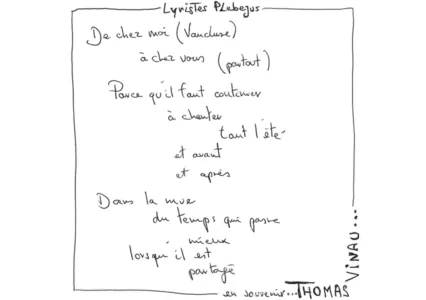 Lyristes Plebejus
De chez moi (Vaucluse)
à chez vous (partout)
Parce qu'il faut continuer
à chanter
tout l'été
et avant
et après
Dans la mue
du temps qui passe
mieux
lorsqu'il est
partagé
en souvenir... THOMAS
VINAU...